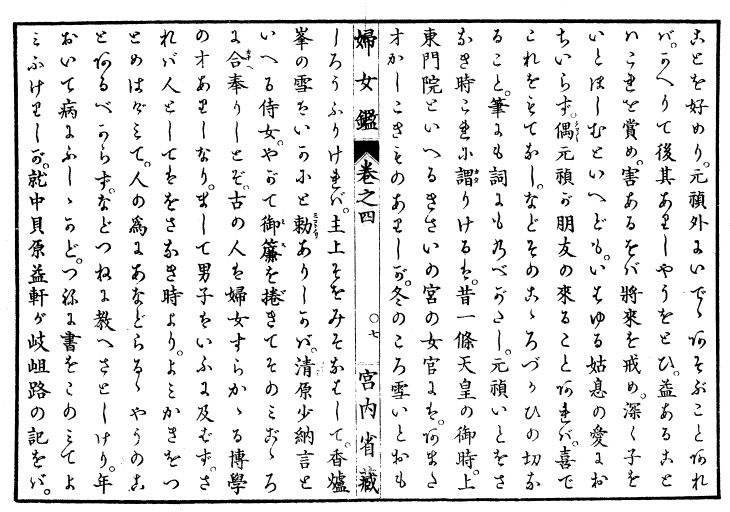 ことを好めり。元禎外にいでゝあそぶことあれ
バ。かへりて後其ありしやうをとひ。益あること
ハこれを賞め。害あるをバ將來を戒め。深く子を
いとほしむといへども。いはゆる姑息の愛にお
ちいらず。偶元禎が朋友の來ることあれバ。喜で
これをもてなし。などそのこゝろづかひの切な
ること。筆にも詞にも及べがたし。元禎いとをさ
なき時これに謂りけるは。昔一條天皇の御時。上
東門院といへるきさいの宮の女官には。あまた
才かしこきものありしが。冬のころ雪いとおも
婦女鑑 卷之四 〇七 宮内省藏
しろうふりけれバ。主上そをみそなはして。香爐
峯の雪はいかにと勅ありしかバ。清原少納言と
いへる侍女。やがて御簾を捲きてそのみこゝろ
に合奉りしとぞ。古の人を婦女すらかゝる博學
の才ありしなり。まして男子をいふに及はず。さ
れバ人としてはをさなき時より。よみかきをつ
とめはげみて。人の爲にあなどらるゝやうのこ
とあるべからず。などつねに教へさとしけり。年
おいて病にふしゝかど。つねに書をこのみてよ
みふけりしが。就中貝原益軒が岐岨路の記をバ。